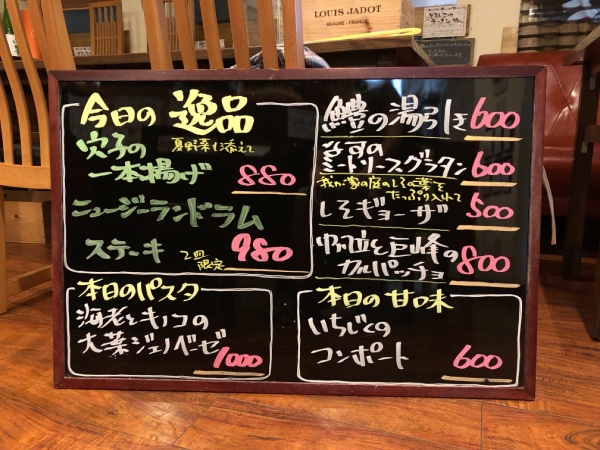 LOUIS JADOT
BEAUNE - FRANCE
今日の 逸品
穴子の
夏野菜も添えて
一本揚げ 880
ニュージーランドラム
ステーキ 2皿限定 980
鱧の湯引き 600
なすの
ミートソースグラタン 600
我が家の庭のしその葉を
たっぷり入れて
しそギョーザ 500
帆立と巨峰の
カルパッチョ 800
本日のパスタ
海老とキノコの
大葉ジェノベーゼ 1000
本日の甘味
いちじくの
コンポート 600